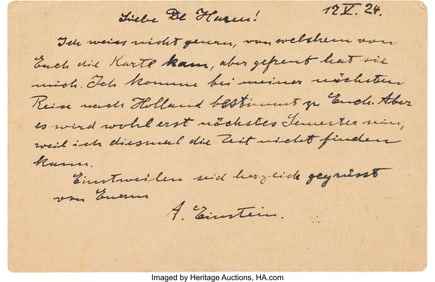 Liebe De Haasen! 12 V. 24.
Ich weiss nicht genau, von welchem von
Euch die Karte kam, aber gefreut hat sie
mich. Ich komme bei meiner nächsten
Reise nach Holland bestimmt zu Euch. Aber
es wird wohl erst nächstes Semester sein,
weil ich diesmal die Zeit nicht finden
kann.
Einstweilen seid herzlich gegrüsst
von Euerm
A. Einstein.
Imaged by Heritage Auctions, HA.com